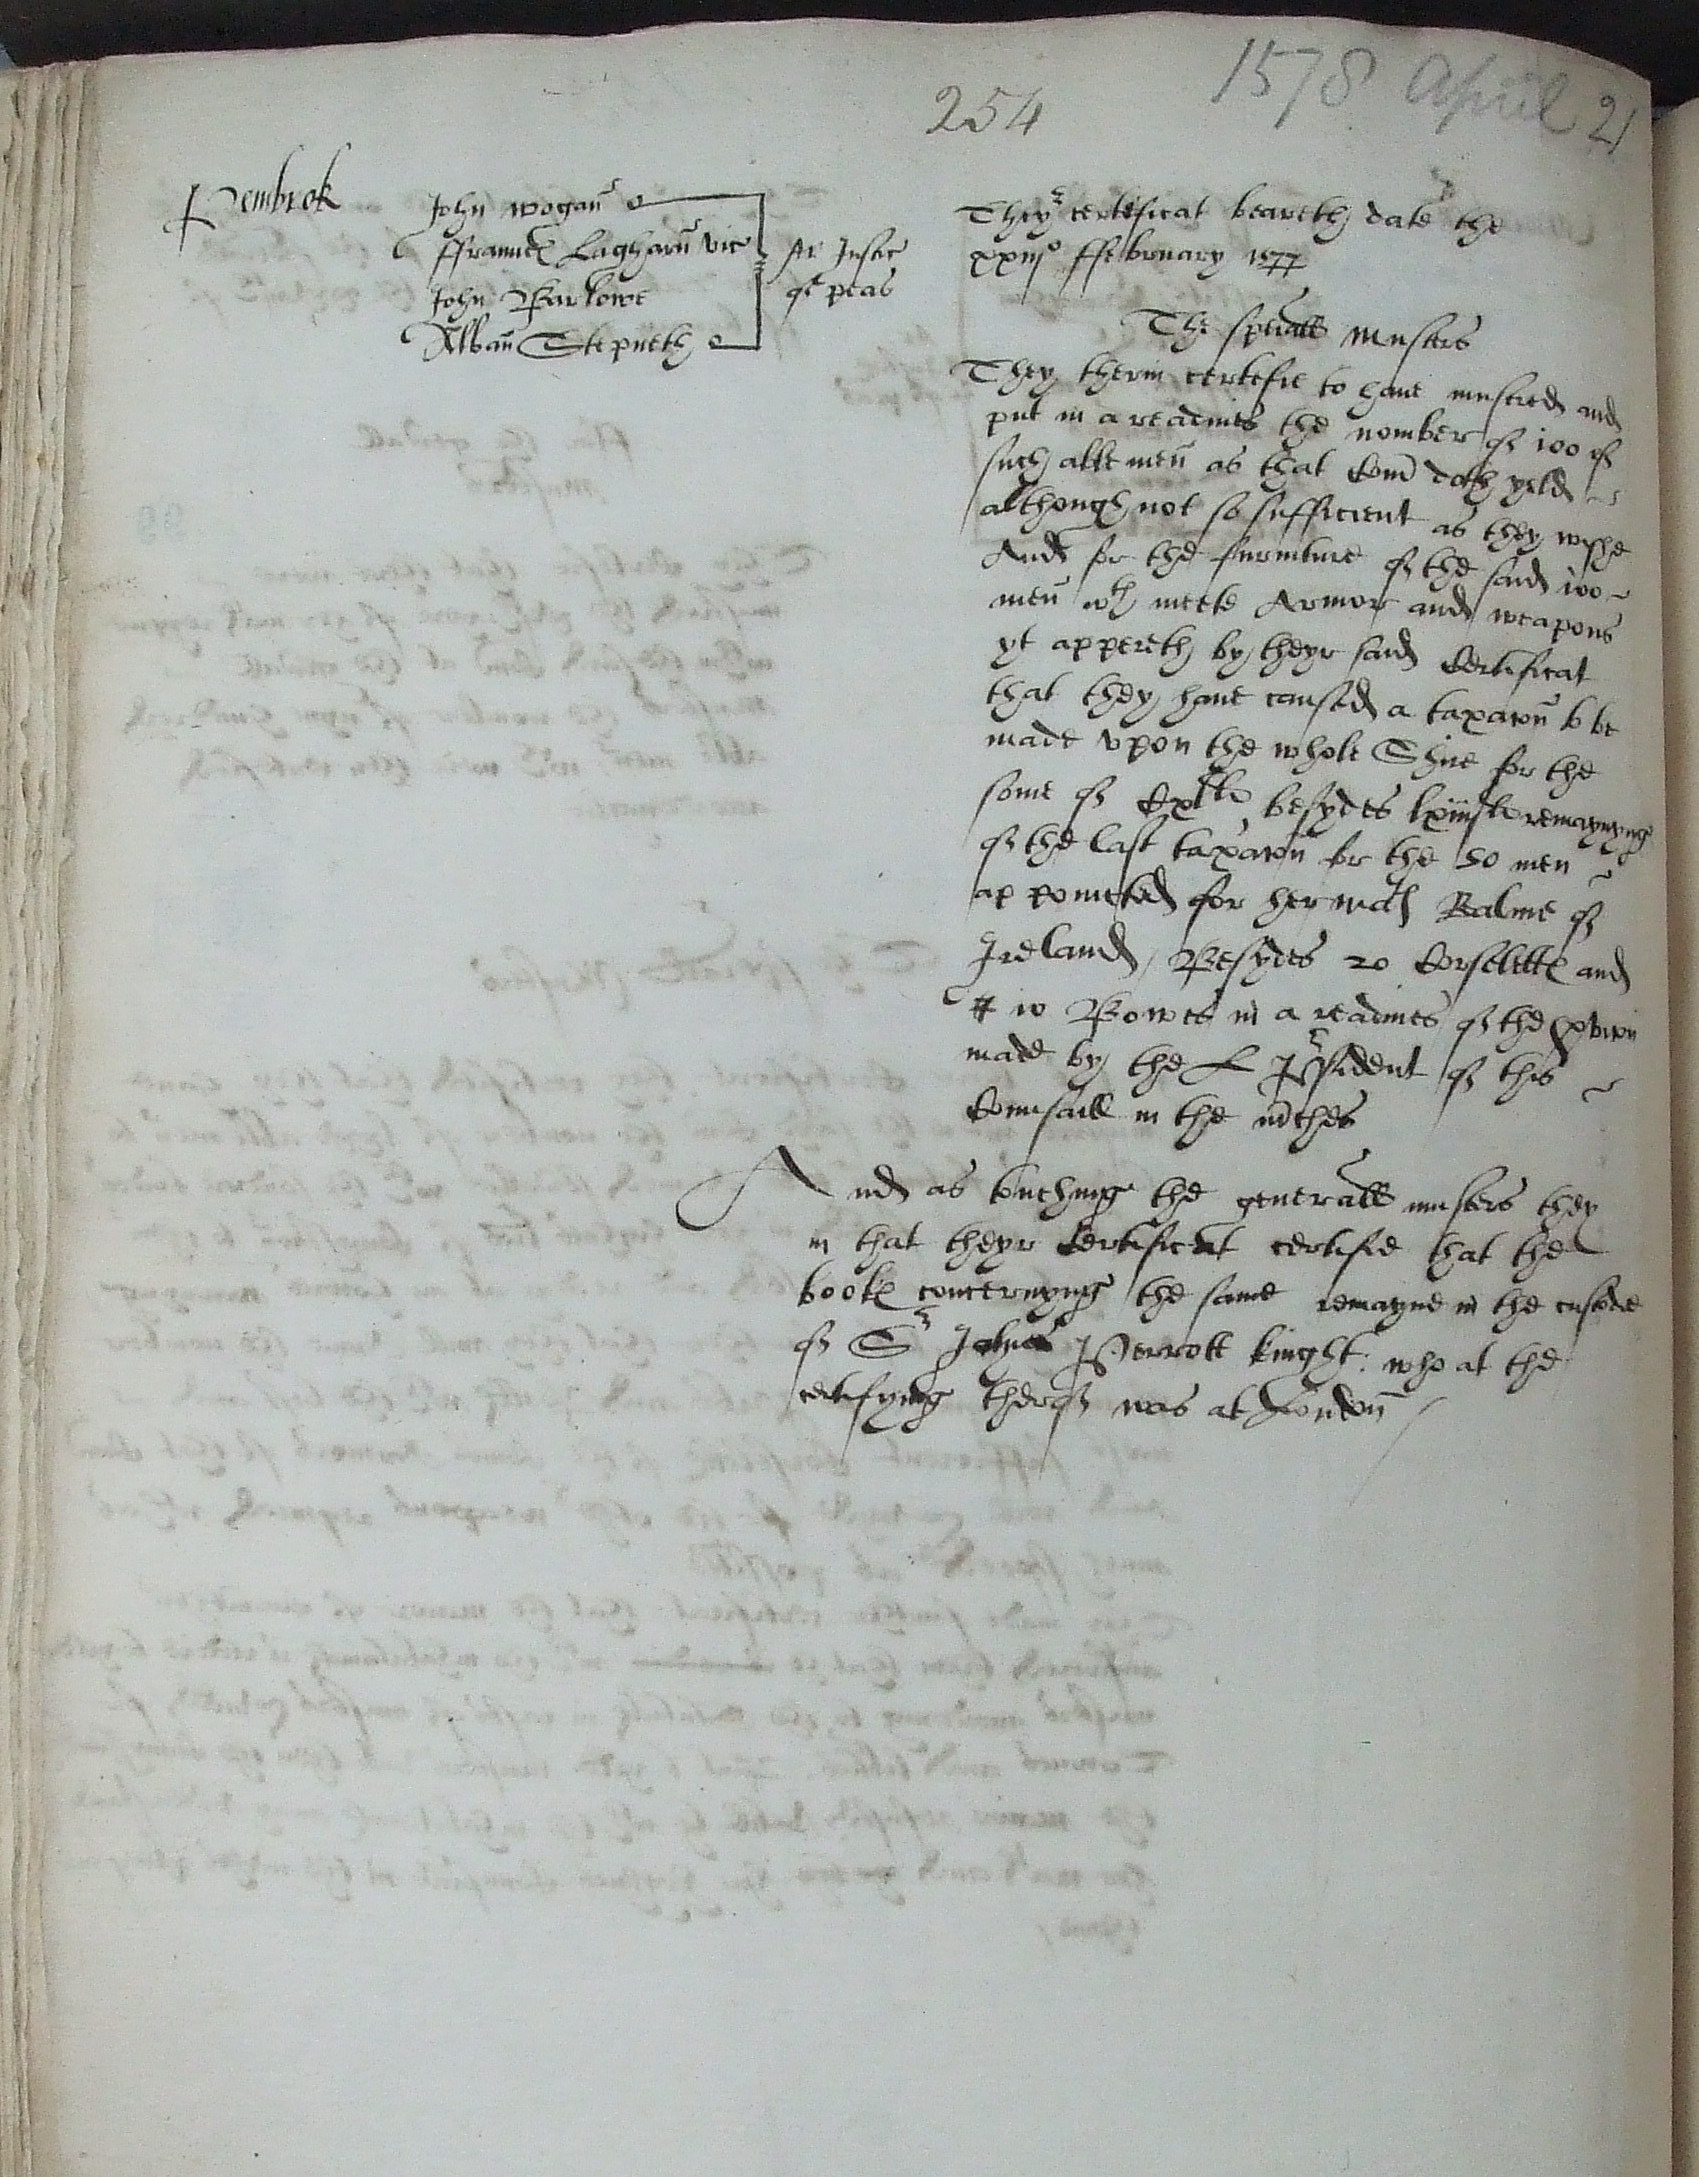 254
1578 April 21
Pembrok
John Wogan
ffrauncis Lagharn vic
John Barlowe
Alban Stepneth
Ar Justic
of peas
Theyr certificat beareth date the
xxiijo ffebruary 1577
The speciall musters
They therin certefie to have mustred and
put in a readines the nomber of 100 of
such able men as that Com doth yeld
although not so sufficient as they wishe
And for the furniture of the said 100
men wth meete Armor and weapons
yt appereth by theyr said Certificat
that they have caused a taxacon to be
made upon the whole Shire for the
some of Cxlli besydes lxiiijli remaynyng
of the last taxacon for the 50 men
appoincted for her mats Realme of
Ireland, Besydes 20 Corseletts and
10 Bowes in a readines of the
made by the L President of this
Counsaill in the mrches
And as touching the generall musters they
in that theyr Certificat certifie that the
books concernyng the same remayne in the custodie
of Sr John Perrott knight: who at the
certifying therof was at London